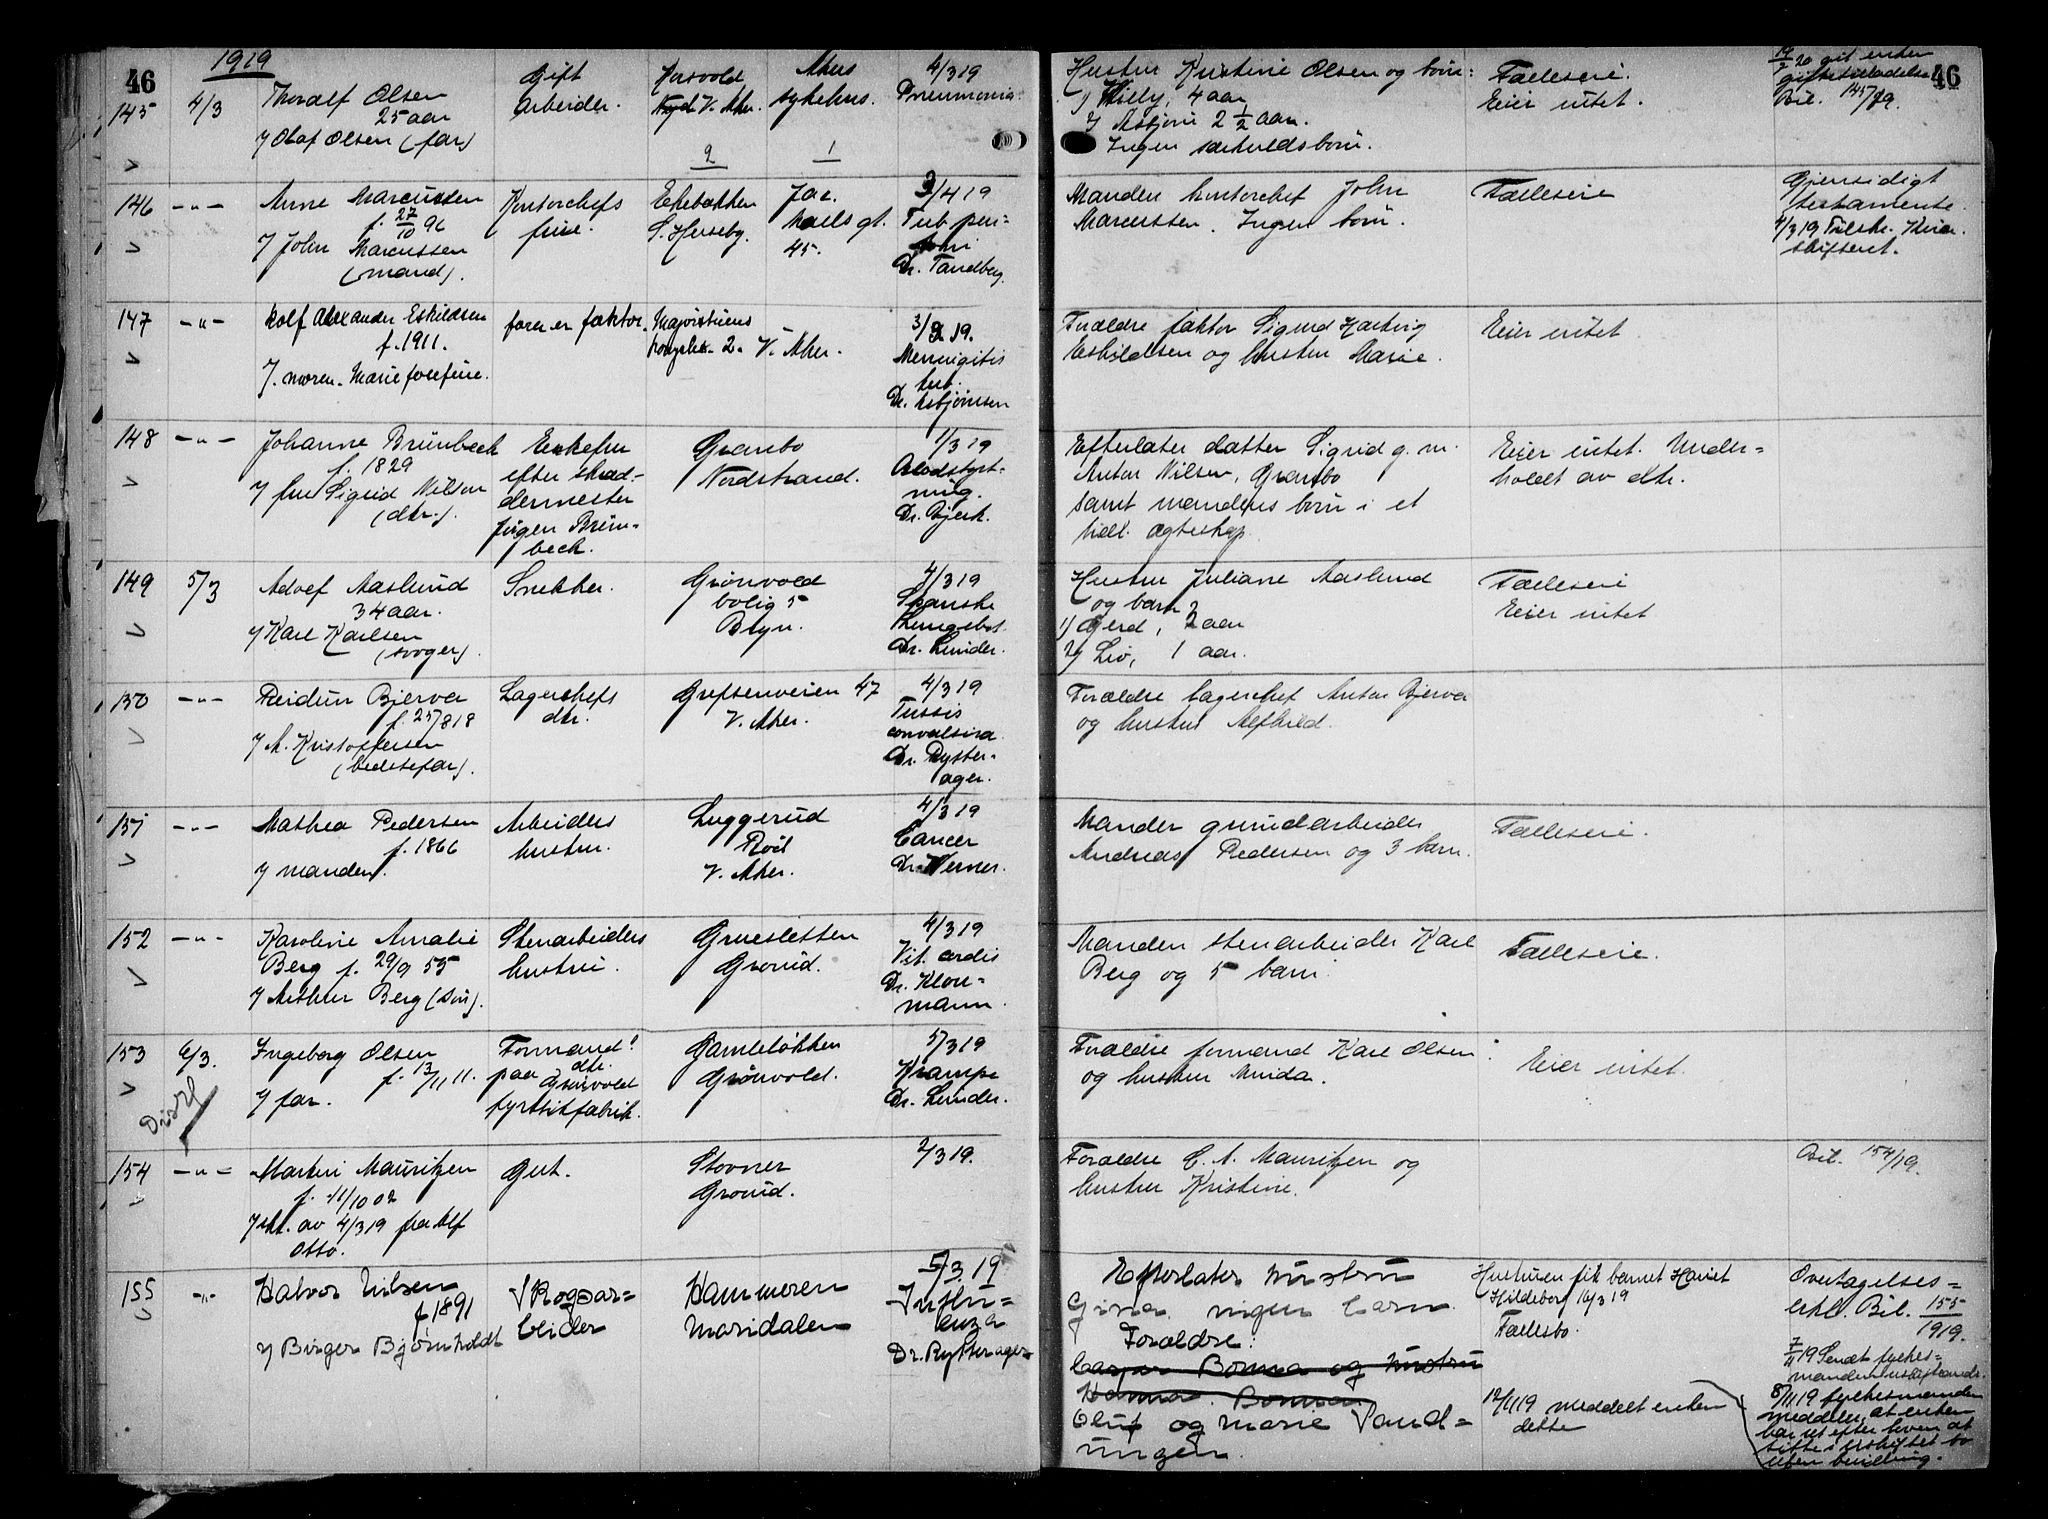 46
1919
145
4/3
Thoralf Olsen
25 aar
v/ Olaf Olsen (far)
Gift
Arbeider.
V. Aker.
2
Akers
sykehus.
1
4/3 19
Pneumonia
Hustru Kristine Olsen og børn:
1) Willy, 4 aar
2) Asbjørn 2 1/2 aar.
Ingen særkuldsbørn.
Fælleseie.
Eier intet.
Bil. 145/19.
46
146
-"-
Anne Marcussen
f. 27/10 96
v/ John Marcussen
(mand).
Kontorchefs
frue.
Ekebakken
S. Herseby.
Jac.
Aalls gt.
45.
3/4 19
Tub. pul-
Dr. Tandberg.
Manden kontorchef John
Marcussen. Ingen børn.
Fælleseie
Gjensidigt
testamente.
4/3 19 Tilskr. Kr.a
skifteret.
147
-"-
Rolf Alexander Eskildsen
f. 1911.
v/ moren. Marie Josefine.
faren er faktor.
Majorstuens
2. V. Aker.
3/3 19.
Menningitis
tub.
Dr. Asbjørnsen
Forældre faktor Sigurd Hartvig
Eskildsen og hustru Marie.
Eier intet
148
-"-
Johanne Brünbeck
f. 1829
v/ fru Sigrid Nilson
(dtr.).
Enkefru
efter skræd-
dermester
Jørgen Brün-
beck.
Granbo
Nordstrand.
1/3 19
Blodstyrt-
ning.
Dr. Bjerk.
Efterlater datter Sigrid g. m.
Anton Nilsen, Granbo
samt mandens børn i et
tidl. ægteskap.
Eier intet. Under-
holdt av dtr.
149
5/3
Adolf Aaslund
34 aar.
v/ Karl Karlsen
(svoger).
Snekker.
Grønvold
bolig 5
Bryn.
4/3 19
Spanske
Lungebet.
Dr. Lunder.
Hustru Juliane Aaslund
og barn
1) Gerd, 2 aar
2) Liv, 1 aar.
Fælleseie
Eier intet
150
-"-
Reidun Bjerva
f. 25/8 18
v/ A. Kristoffersen
(bedstefar).
Lagerchefs
dtr.
Grefsenveien 47
V. Aker.
4/3 19
Tussis
convulsiva
Dr. Rytter-
ager.
Forældre lagerchef Anton Bjerva
og hustru Alfhild.
151
-"-
Mathea Pedersen
f. 1866
v/ manden.
Arbeiders
hustru.
Luggerud
Røa
V. Aker.
4/3 19
Cancer
Dr. Werner.
Manden grundarbeider
Andreas Pedersen og 3 barn.
Fælleseie.
152
-"-
Karoline Amalie
Berg f. 29/9 55
v/ Arthur Berg (søn).
Stenarbeiders
hustru.
Gruesletten
Grorud.
4/3 19
Vit. cordis
Dr. Klou-
mann.
Manden stenarbeider Karl
Berg og 5 barn.
Fælleseie.
153
6/3.
Ingeborg Olsen
f. 13/11 11.
v/ far.
Formand!
dtr.
paa Grønvold
fyrstikfabrik.
Gamleløkken
Grønvold.
5/3 19
Krampe
Dr. Lunder.
Forældre formand Karl Olsen
og hustru Amida.
Eier intet.
154
-"-
Martin Mauritzen
f. 11/10 02
v/ skr. av 4/3 19 fra Alf
Otto.
Gut.
Stovner
Grorud.
2/3 19.
Forældre C. A. Mauritzen og
hustru Kristine.
Bil. 154/19.
155
-"-
Halvor Nilsen
f. 1891
v/ Birger Bjørnholdt
Skogsar-
beider
Hammeren
Maridalen
5/3 19
Influ-
enza
Dr. Rytterager
Efterlater hustru
Gina ingen barn.
Forældre:
Casper Bonna og hustru
Hanna Bonna
Oluf og Marie Sand-
ungen.
Hustruen fik barnet Harriet
Hildeborg 16/3 19
Fællesbo.
12/11 19 meddelt enken
dette
Overtagelses-
erkl. Bil. 155/1919.
7/11 19 Sendt fylkes-
8/11 19 fylkesmanden
meddeler, at enken
har ret efter loven at
sitte i uskiftet bo
uten bevilling.